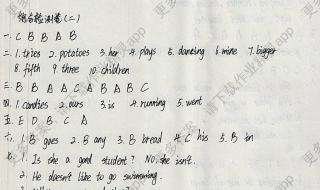 综合检测卷(二)
一. C B B A B
二. 1. tries 2. potatoes 3. her 4. plays 5. dancing 6. mine 7. bigger
8. fifth 9. three 10. children
三. B B A C A B A B C
四. 1. candies 2. ours 3. is 4. running 5. went
五. E D B C A
六. 1. B goes 2. B any 3. B bread 4. C his 5. B in
七. 1. Is she a good student? No, she isn't.
2. He doesn't like to go swimming.